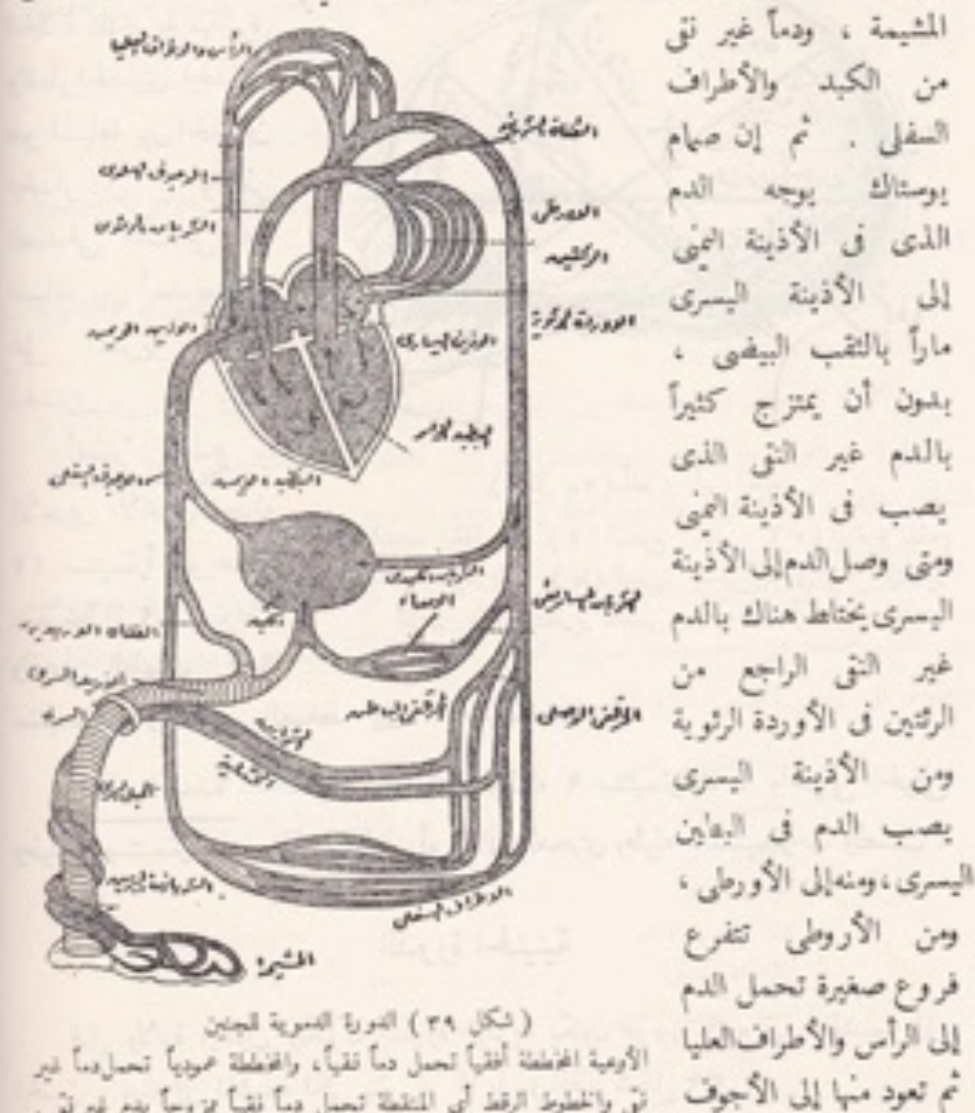 المشيمة ، ودماً غير نقى
من الكبد والأطراف
السفلى . ثم إن صمام
يوستاك يوجه الدم
الذى فى الأذينة اليمنى
إلى الأذينة اليسرى
ماراً بالثقب البيضى ،
بدون أن يمتزج كثيراً
بالدم غير النقى الذى
يصب فى الأذينة اليمنى
ومتى وصل الدم إلى الأذينة
اليسرى يختلط هناك بالدم
غير النقى الراجع من
الرئتين فى الأوردة الرئوية
ومن الأذينة اليسرى
يصب الدم فى البطين
اليسرى ، ومنه إلى الأورطى ،
ومن الأروطى تتفرع
فروع صغيرة تحمل الدم
إلى الرأس والأطراف العليا
ثم تعود منها إلى الأجوف
الرأس والأطراف العليا
القناة الشريانية
الأورطى
الرئتين
الأوردة الرئوية
الأذين اليسارى
الكبد
الأمعاء
السرة
الحبل السرى
الأطراف السفلى
المشيمة
( شكل ٣٩ ) الدورة الدموية للجنين
الأوعية المخططة أفقياً تحمل دماً نقياً ، والمخططة عمودياً تحمل دماً غير
نقى والخطوط الرقط أى المنقطة تحمل دماً نقياً ممزوجاً بدم غير نقى